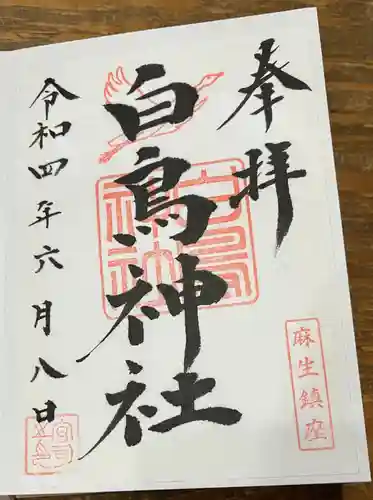 奉拝
白鳥神社
麻生鎮座
令和四年六月八日